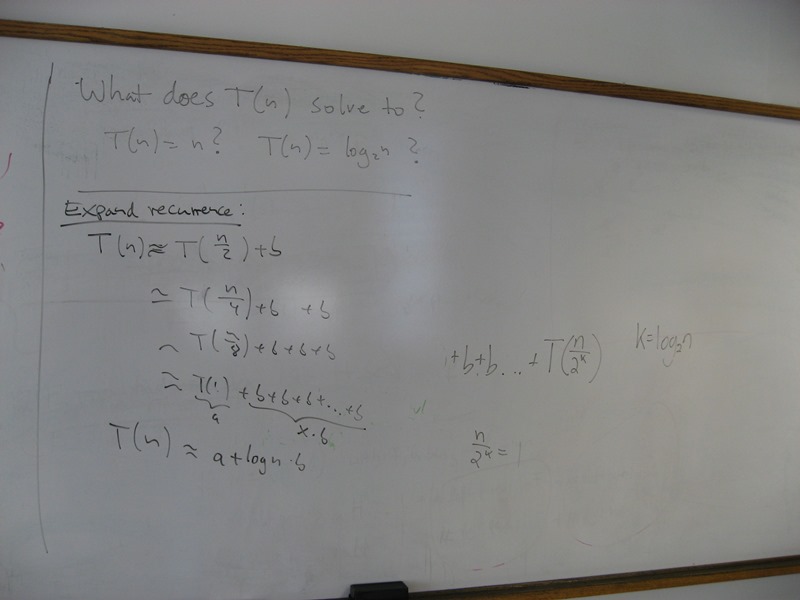 What does T(n) solve to?
T(n) = n? T(n) = log₂n ?
Expand recurrence:
T(n) ≈ T(n/2) + b
≃ T(n/4) + b + b
~ T(n/8) + b + b + b
≈ T(1) + b + b + b + ... + b
a x·b
T(n) ≈ a + log n · b
+b+b... + T(n/2ᵏ) k = log₂n
n/2ᵏ = 1